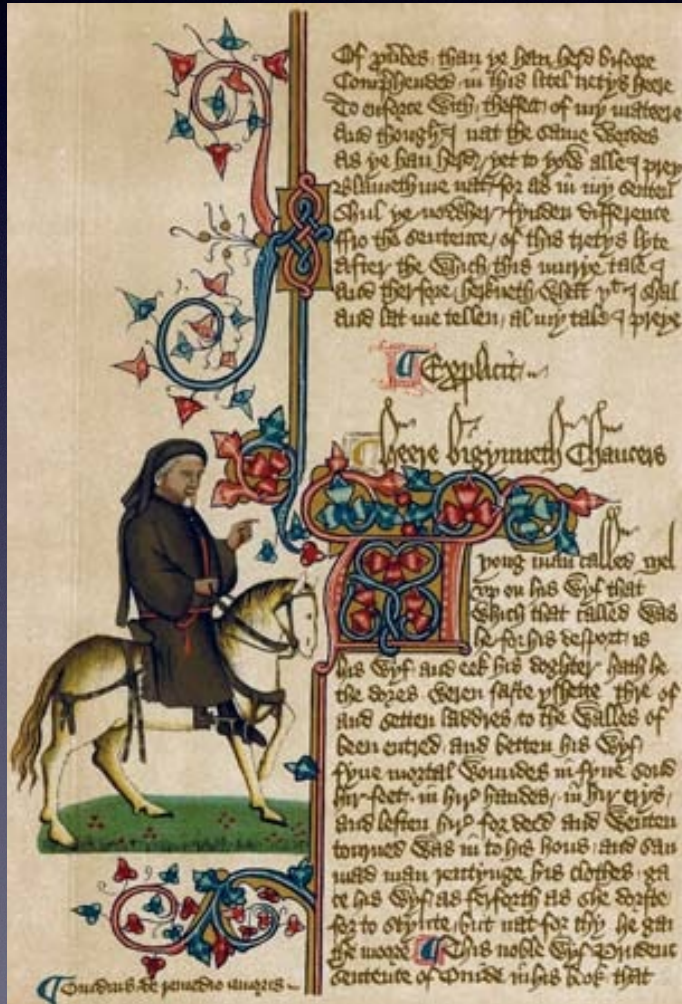 Of prouerbes than ye han herd bifore
Comprehended in this litel tretys heere
To enforce with theffect of my mateere
And though I nat the same wordes
As ye han herd / yet to yow alle I preye
Blameth me nat / for as in my senten
Shul ye nowher fynden difference
ffro the sentence / of this tretys lyte
After the which this murye tale I
And therfore herkneth what yt I shal
And lat me tellen / al my tale I preye
Explicit
Heere bigynneth Chaucers
A yong man called Mel
vp on his wyf that
which that called was
he for his desport is
his wyf and eek his doghter hath he
the dores weren faste yshette thre of
and setten laddres to the walles of
been entred and betten his wyf
fyue mortal woundes in fyue sond
hir feet in hir handes in hir erys
and leften hir for deed and wenten
torned was in to his hous and saugh
mad man rentynge his clothes ga
ce his wyf as ferforth as she dorste
for to stynte but nat for thy he gan
the moore This noble wyf Prudence
sentence of Ouide in his book that
Ouidius de remedio amoris